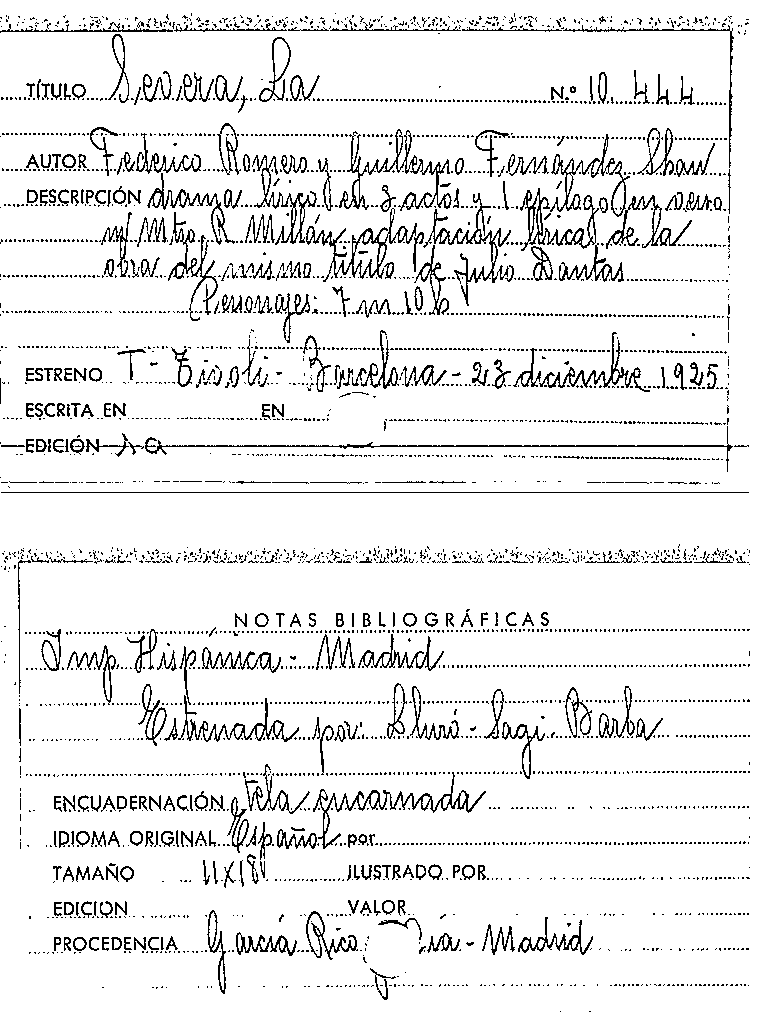 TÍTULO Severa, La N.º 10.444
AUTOR Federico Romero y Guillermo Fernández Shaw
DESCRIPCIÓN drama lírico en 3 actos y 1 epílogo en verso
m/ Mtro. R. Millán, adaptación lírica de la
obra del mismo título de Julio Dantas
Personajes: 7 m 10 h
ESTRENO T - Tivoli - Barcelona - 23 diciembre 1925
ESCRITA EN EN
EDICIÓN
NOTAS BIBLIOGRÁFICAS
Imp. Hispánica - Madrid
Estrenada por: Lluró - Sagi - Barba
ENCUADERNACIÓN tela encarnada
IDIOMA ORIGINAL Español por
TAMAÑO 11x18 ILUSTRADO POR
EDICION VALOR
PROCEDENCIA García Rico - Madrid